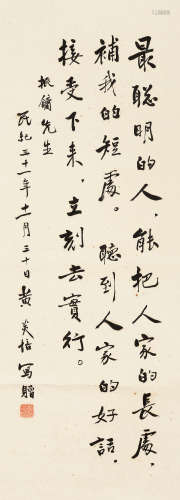 最聰明的人，能把人家的長處，
補我的短處。聽到人家的好話，
接受下来，立刻去實行。
鏞先生
民紀三十一年十一月三十日黄炎培寫贈